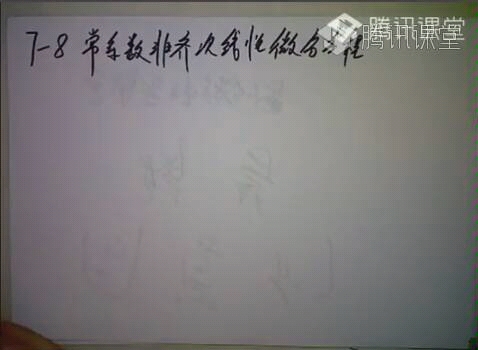 腾讯课堂
腾讯课堂
7-8 常系数非齐次线性微分方程